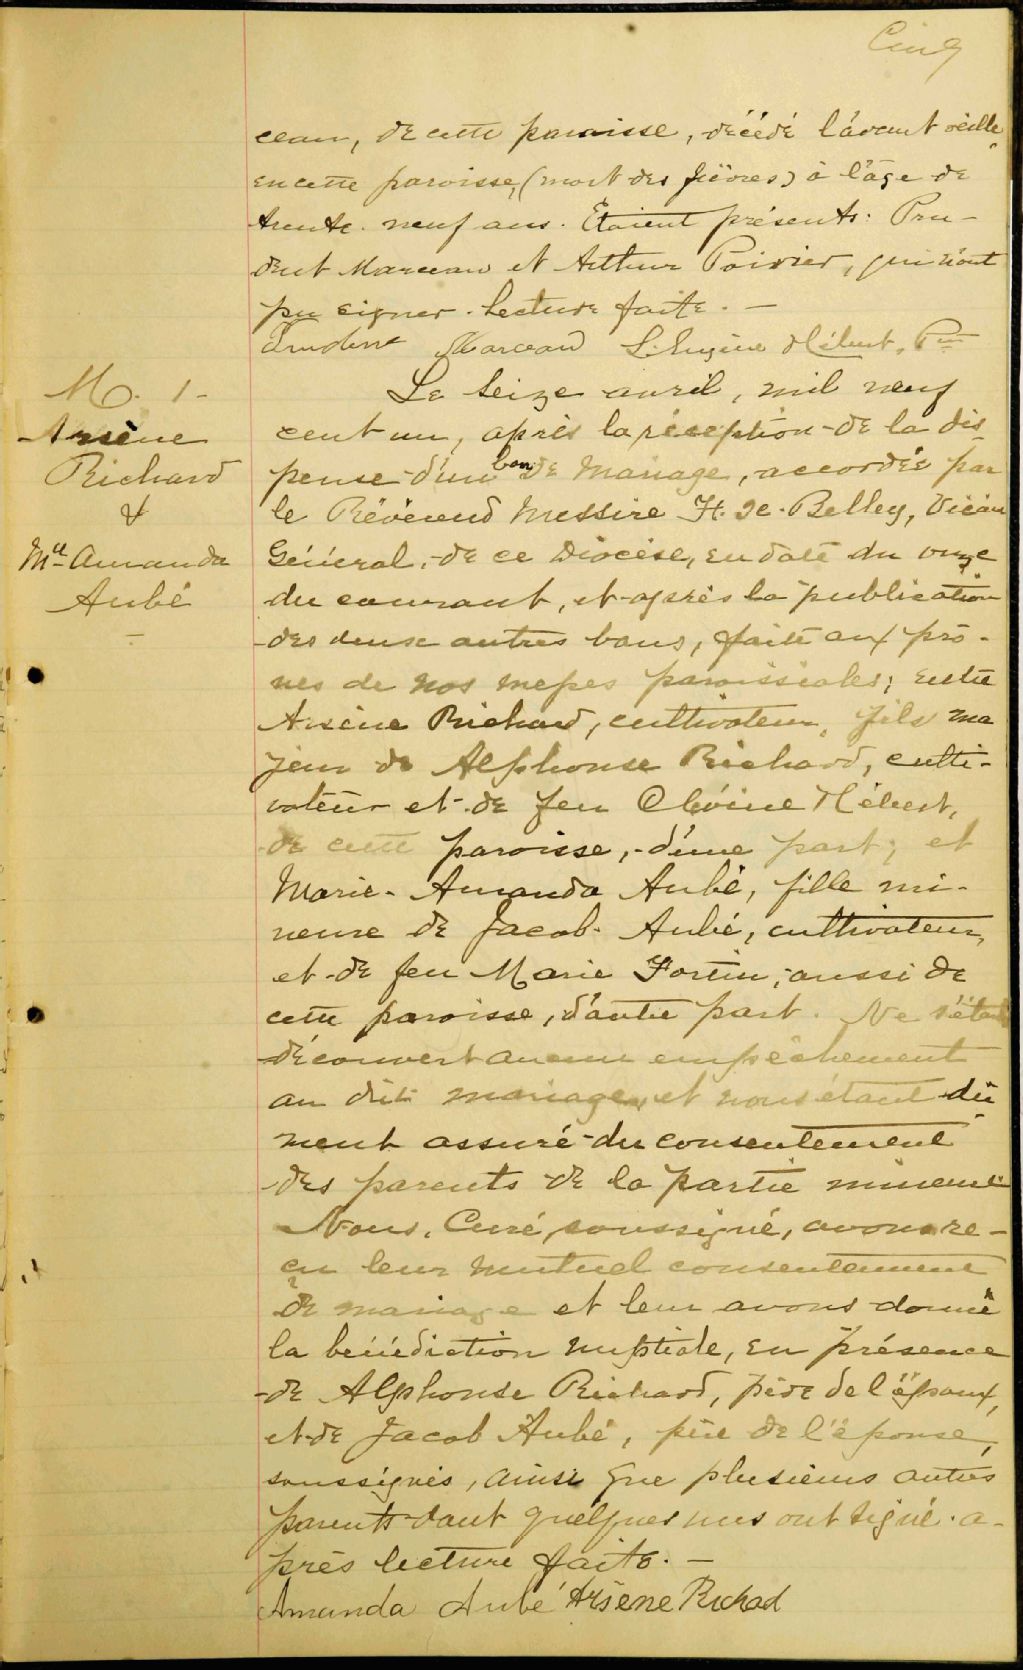 Cinq
ceau, de cette paroisse, décédé l'avant veille
en cette paroisse, (mort des fièvres) à l'âge de
trente-neuf ans. Etaient présents: Pru-
dent Marceau et Arthur Poirier, qui n'ont
pu signer. Lecture faite. —
Prudent Marceau L. Eugène Hébert, Ptre
M. 1-
Arsène
Richard
&
Mie Amanda
Aubé
Le Seize avril, mil neuf
cent un, après la réception de la dis
pense d'un ban de Mariage, accordée par
le Révérend Messire F. X. Belley, Vicaire
Général, de ce Diocèse, en date du onze
du courant, et après la publication
des deux autres bans, faite aux prô-
nes de nos messes paroissiales; entre
Arsène Richard, cultivateur, fils ma
jeur de Alphonse Richard, culti-
vateur et de feu Hébert,
de cette paroisse, d'une part; et
Marie-Amanda Aubé, fille mi-
neure de Jacob Aubé, cultivateur,
et de feu Marie Fortin, aussi de
cette paroisse, d'autre part. Ne s'étant
découvert aucun empêchement
au dit mariage, et nous étant dû
ment assuré du consentement
des parents de la partie mineure
Nous, Curé, soussigné, avons re-
çu leur mutuel consentement
de mariage et leur avons donné
la bénédiction nuptiale, en présence
de Alphonse Richard, père de l'époux,
et de Jacob Aubé, père de l'épouse,
soussignés, ainsi que plusieurs autres
parents dont quelques uns ont signé. a-
près lecture faite. —
Amanda Aubé Arsène Richad